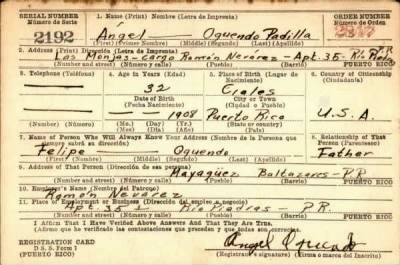 SERIAL NUMBER 1. Name (Print) Nombre (Letra de Imprenta) ORDER NUMBER
Número de Serie Número de Orden
2192 Ángel Oquendo Padilla
(First) (Primer Nombre) (Middle) (Segundo) (Last) (Apellido)
2. Address (Print) Dirección (Letra de Imprenta)
Las Monjas - cargo Ramón Nevarez - Apt. 35 - Río Piedras
(Number and street) (Número y calle) (Town) (Pueblo) PUERTO RICO
3. Telephone (Teléfono) 4. Age in Years (Edad) 5. Place of Birth (Lugar de Nacimiento) 6. Country of Citizenship (Ciudadanía)
32 Ciales
Date of Birth (Fecha Nacimiento) City or Town (Ciudad o Pueblo)
1908 Puerto Rico U.S.A.
(Number) (Número) (Mo.) (Day) (Yr.) (State or Country)
7. Name of Person Who Will Always Know Your Address (Nombre de la Persona que siempre sabrá su dirección) 8. Relationship of That Person (Parentesco)
Felipe Oquendo Father
(First) (Primer Nombre) (Middle) (Segundo) (Last) (Apellido)
9. Address of That Person (Dirección de esa persona)
Mayagüez Baltazares - P.R.
(Number and street) (Número y calle) (Town) (Pueblo) PUERTO RICO
10. Employer's Name (Nombre del Patrono)
Ramón Nevarez
11. Place of Employment or Business (Dirección del empleo o negocio)
Apt. 35 Río Piedras - P.R.
(Number and street) (Número y calle) (Town) (Pueblo) PUERTO RICO
I Affirm That I Have Verified Above Answers And That They Are True.
(Afirmo que he verificado las contestaciones que preceden y que todas son ciertas).
REGISTRATION CARD
D. S. S. Form 1
(PUERTO RICO)
Angel Oquendo
(Registrant's signature) (Firma o marca del Inscrito)